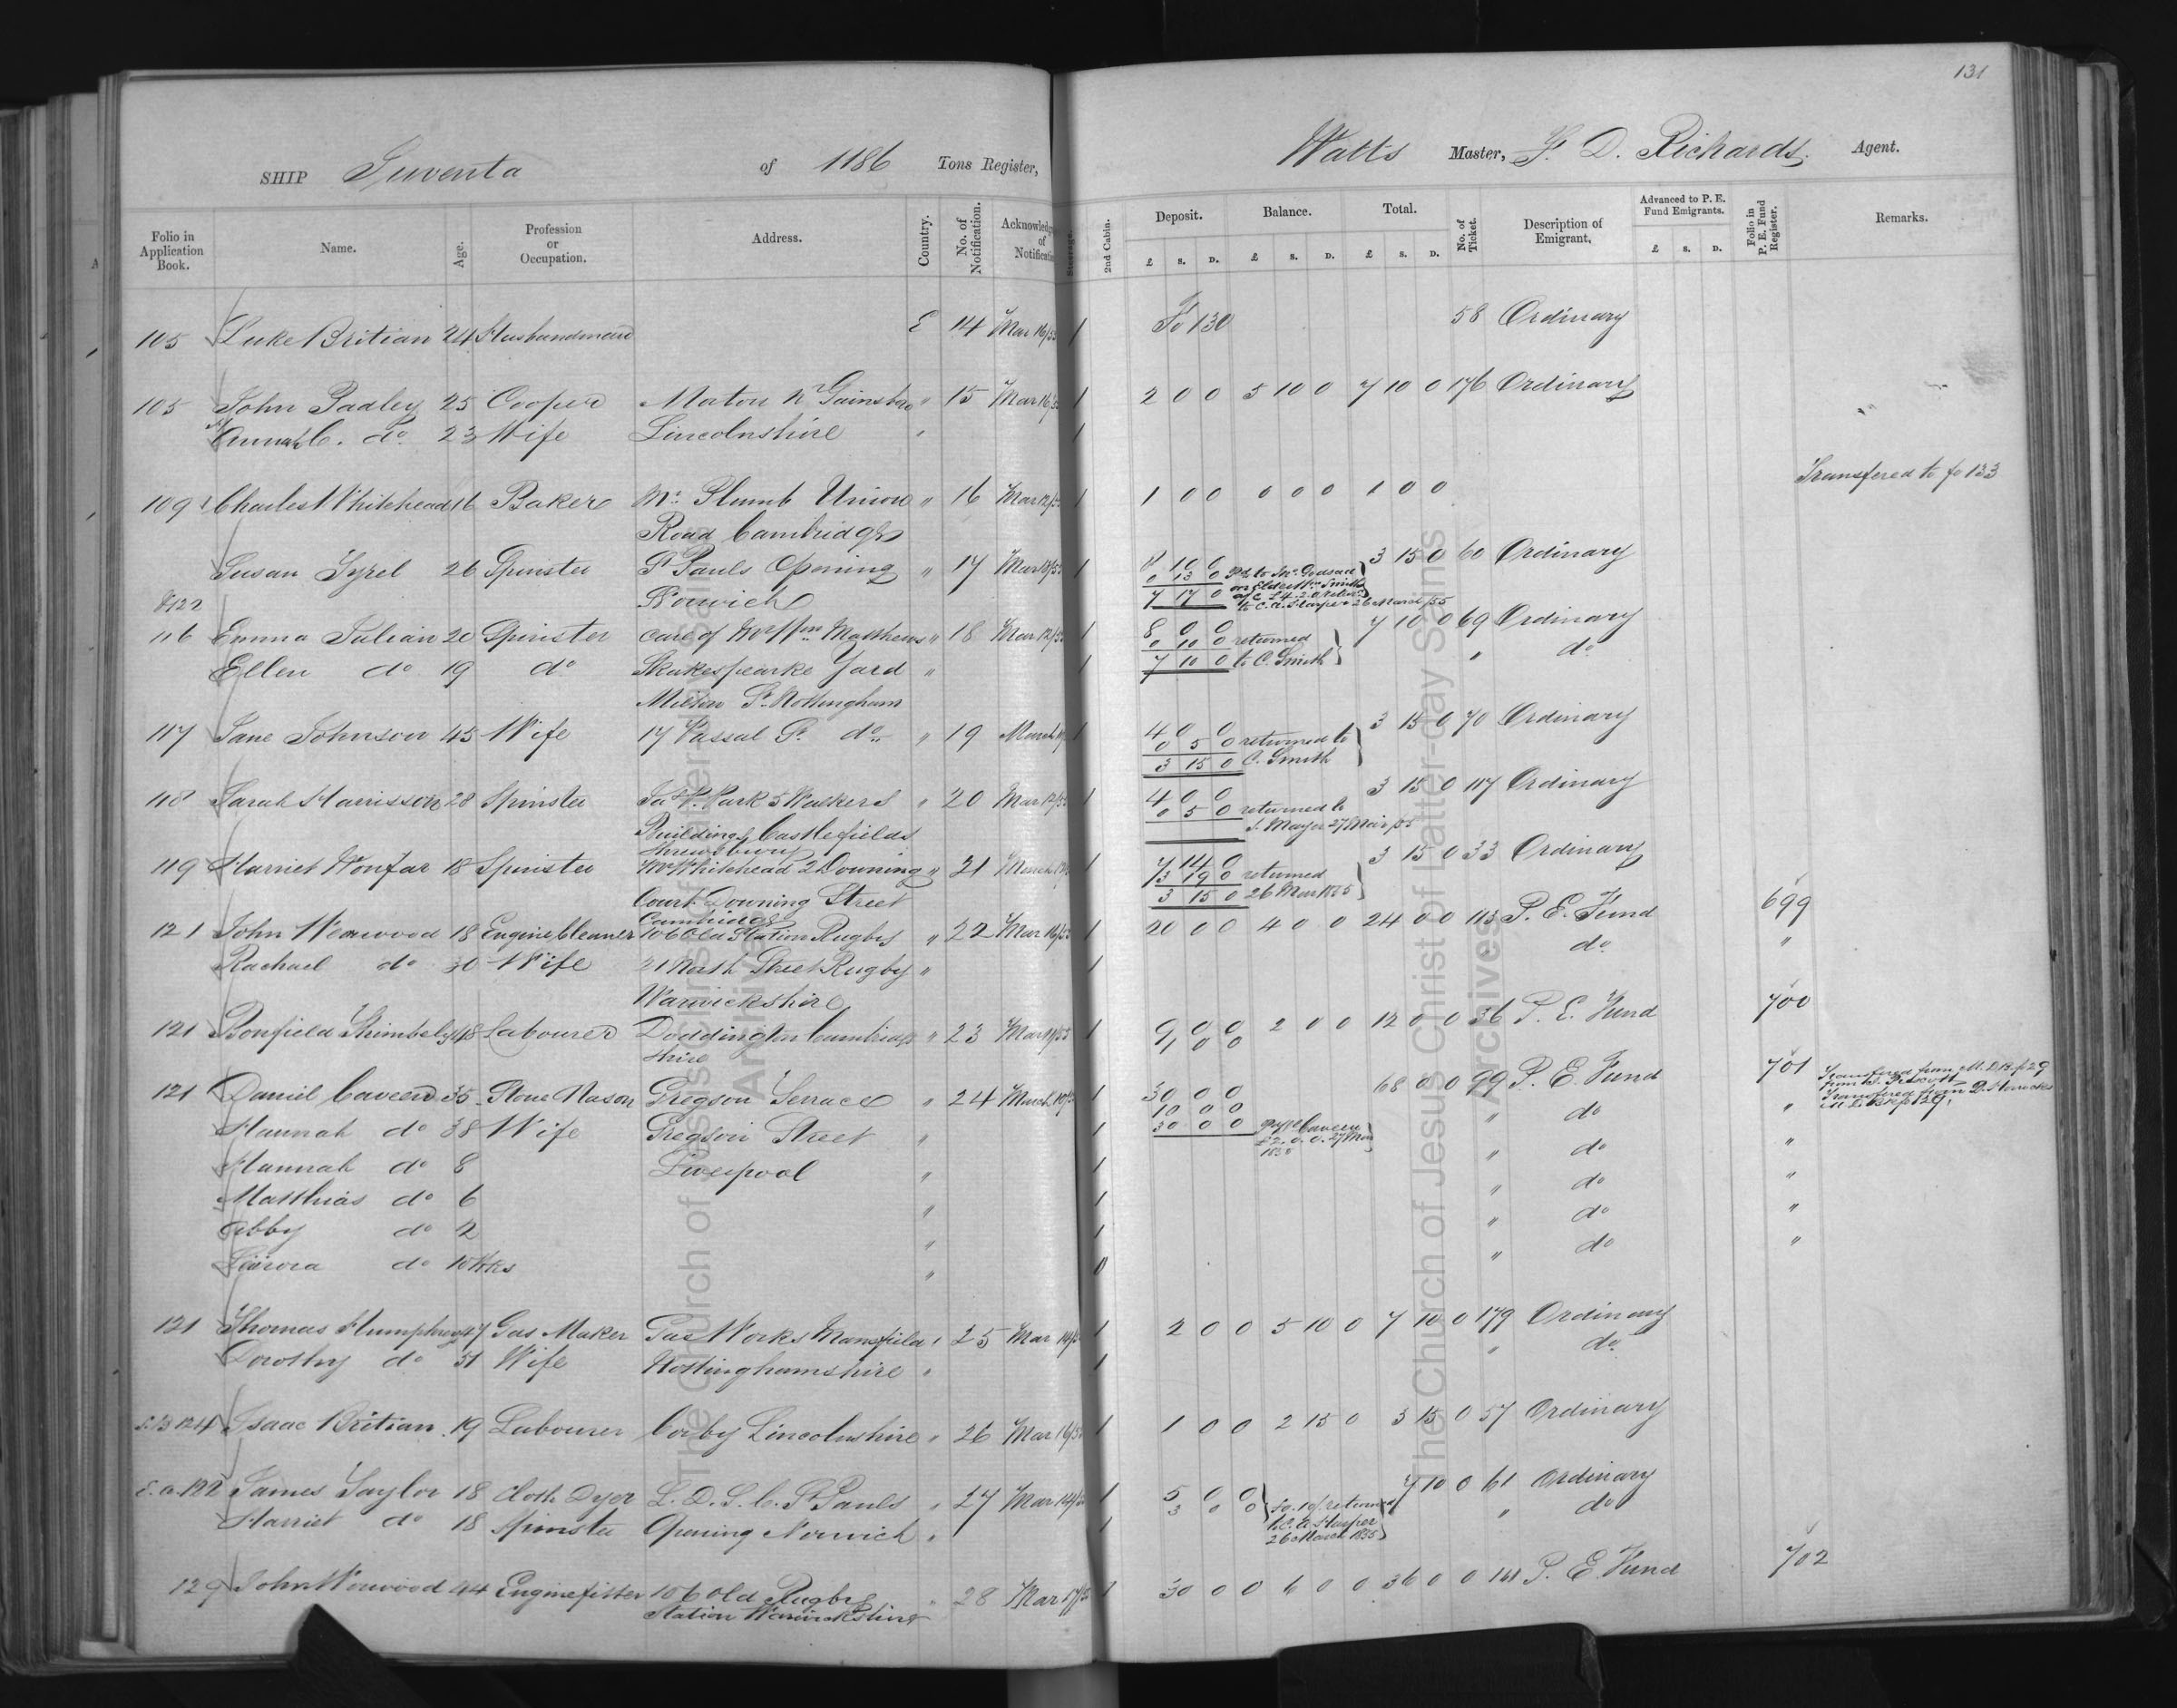 131
SHIP Juventa of 1186 Tons Register, Watts Master, F. D. Richards. Agent.
Folio in Application Book. Name. Age. Profession or Occupation. Address. Country. No. of Notification. Acknowledg of Notificatio Steerage. 2nd Cabin. Deposit. £ S. D. Balance. £ S. D. Total. £ S. D. No. of Ticket. Description of Emigrant. Advanced to P. E. Fund Emigrants. £ S. D. Folio in P. E. Fund Register. Remarks.
105 Luke Britian 24 Husbandman E 14 Mar 16/55 1 Fo 130 58 Ordinary
105 John Padley 25 Cooper Morton Nr Gainsboro " 15 Mar 16/55 1 2 0 0 5 10 0 7 10 0 176 Ordinary
C. do 23 Wife Lincolnshire " 1
109 Charles Whitehead 16 Baker Mr Plumb Union " 16 Mar 12/55 1 1 0 0 0 0 0 1 0 0 Transfered to fo 133
Road Cambridge
Susan Tyrel 26 Spinster St Pauls Opening " 17 Mar 1 8 10 0 3 15 0 60 Ordinary
0 13 0 Pd to Jno Godsad
on Elder Wm Smiths
122 Norwich 7 17 0 a/c £4.2.0
to C. A. Harper 26 March /55
116 Emma Julian 20 Spinster care of Mr Wm Matthews " 18 Mar 12/55 1 8 0 0 7 10 0 69 Ordinary
0 10 0 returned
Ellen do 19 do Shakespearke Yard " 1 7 10 0 to C. Smith " do
Milton St Nottingham
117 Jane Johnson 45 Wife 17 Vassal St do " 19 March 1 4 0 0 3 15 0 70 Ordinary
0 5 0 returned to
3 15 0 C. Smith
118 Sarah Harrisson 28 Spinster Park 5 Walkers " 20 Mar 12/55 1 4 0 0 3 15 0 117 Ordinary
0 5 0 returned to
Buildings Castlefields J. Mayer 27 Mar /55
Shrewsbury
119 Harriet Wonfar 18 Spinster Mr Whitehead 2 Downing " 21 March 1 7 14 0 3 15 0 33 Ordinary
3 19 0 returned
Court Downing Street 3 15 0 26 Mar 1855
Cambridge
121 John Worwood 18 Engine Cleaner 106 Old Station Rugby " 22 Mar 16/55 1 20 0 0 4 0 0 24 0 0 113 P. E. Fund 699
Rachael do 30 Wife 21 North Street Rugby " 1 do "
Warwickshire
121 Bonfield 48 Labourer Doddington Cambridge " 23 Mar 1 9 0 0 2 0 0 12 0 0 36 P. E. Fund 700
shire 1 0 0
121 Daniel Caveen 35 Stone Mason Gregson Terrace " 24 March 10/55 1 30 0 0 68 0 0 99 P. E. Fund 701 Transfered from
10 0 0 Transfered from
Hannah do 38 Wife Gregson Street " 1 30 0 0 Caveen " do "
£2.0.0. 27 Mar
Hannah do 8 Liverpool " 1 " do "
Matthias do 6 " 1 " do "
Abby do 2 " 1 " do "
do 10 Wks " 0 " do "
121 Thomas Humphrey 47 Gas Maker Gas Works Mansfield " 25 Mar 1 2 0 0 5 10 0 7 10 0 179 Ordinary
Dorothy do 51 Wife Nottinghamshire " 1 " do
124 Isaac Britian 19 Labourer Corby Lincolnshire " 26 Mar 16/55 1 1 0 0 2 15 0 3 15 0 57 Ordinary
122 James Taylor 18 Cloth Dyer L. D. S. C. St Pauls " 27 Mar 14/55 1 5 0 0 7 10 0 61 Ordinary
3 0 0 £0.10/ returned
Harriet do 18 Spinster Opening Norwich " 1 to C. A. Harper " do
26 March 1855
129 John Worwood 44 Enginefitter 106 Old Rugby " 28 Mar 17/55 1 30 0 0 6 0 0 36 0 0 P. E. Fund 702
Station Warwickshire
The Church of Jesus Christ of Latter-day Saints
Archives
The Church of Jesus Christ of Latter-day Saints
Archives